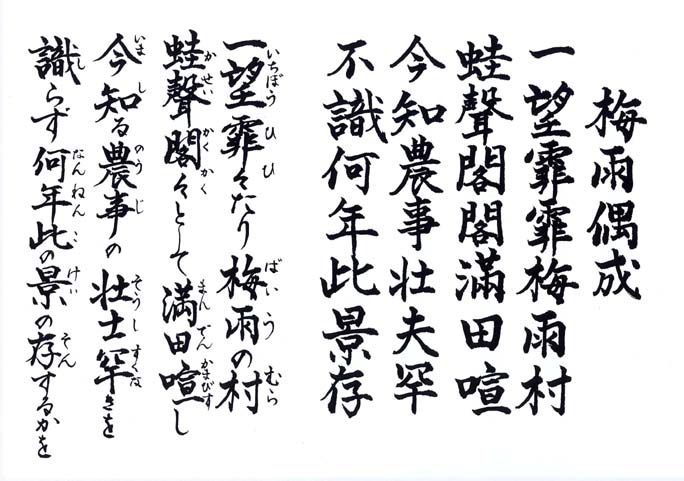 梅雨偶成
一望霏霏梅雨村
蛙聲閣閣滿田喧
今知農事壮夫罕
不識何年此景存
一望霏々たり梅雨の村
いちぼうひひばいうむら
蛙聲閣々として満田喧し
かせいかくかくまんでんかまびす
今知る農事の壮士罕きを
いましのうじそうしすくな
識らず何年此の景の存するかを
しなんねんこけいそん